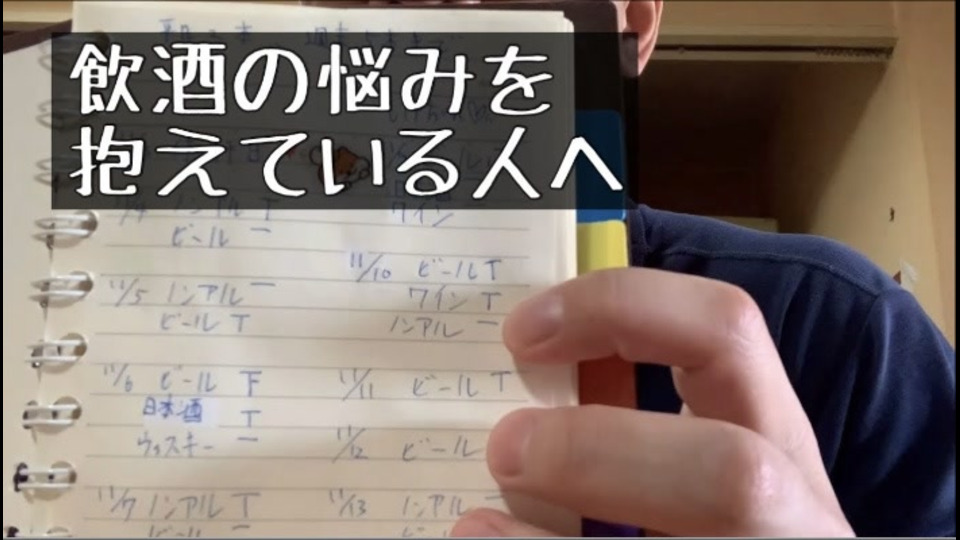 飲酒の悩みを
抱えている人へ
ノンアル T
ビール 一
11/5 ノンアル 一
ビール T
11/6 ビール 下
日本酒 T
ウィスキー 一
11/7 ノンアル T
ビール 一
ワイン
11/10 ビール T
ワイン T
ノンアル 一
11/11 ビール T
11/12 ビール
11/13 ノンアル 一